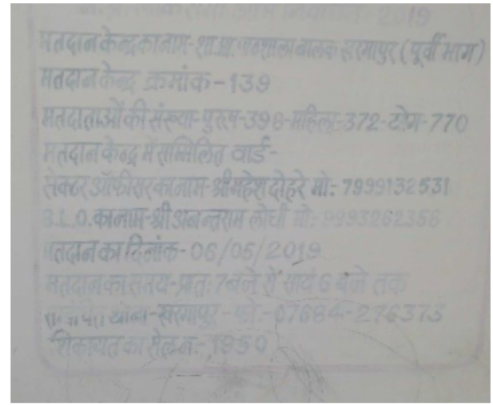 2019
मतदान केन्द्र का नाम-शा.प्रा. पाठशाला बालक खरगापुर (पूर्वी भाग)
मतदान केन्द्र क्रमांक-139
मतदाताओं की संख्या-पुरूष-398-महिला-372-योग-770
मतदान केन्द्र में सम्मिलित वार्ड-
सेक्टर ऑफीसर का नाम-श्री महेश दोहरे मो.: 7999132531
B.L.O. का नाम-श्री अनन्तराम लोधी मो.: 9993262356
मतदान का दिनांक-06/05/2019
मतदान का समय-प्रातः 7 बजे से सायं 6 बजे तक
थाना-खरगापुर-फो.-07684-276373
शिकायत का सेल नं.-1950